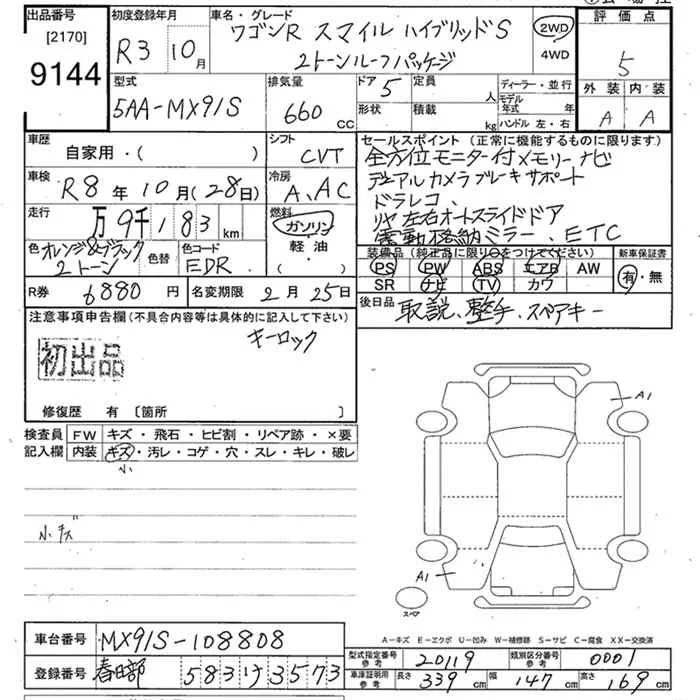 出品番号
[2170]
9144
初度登録年月
R3 10月
車名・グレード
ワゴンR スマイル ハイブリッドS
2トーンルーフパッケージ
2WD
4WD
評価点
5
外装 内装
A A
型式
5AA-MX91S
排気量
660 CC
ドア 5
形状
定員 人
積載 kg
ディーラー・並行
モデル年式 年
ハンドル 左・右
車歴
自家用・( )
シフト
CVT
車検
R8年10月(28日)
冷房
A、AC
走行
万9千183 km
燃料
ガソリン
軽油
・( )
色 オレンジ&ブラック
2トーン
色替
色コード
EDR
R券 6880円
名変期限 2月25日
セールスポイント(正常に機能するものに限ります)
全方位モニター付メモリーナビ
デュアルカメラブレーキサポート
ドラレコ、
リヤ左右オートスライドドア
電動格納ミラー、ETC
装備品(純正品に限り○をつけてください)
PS PW ABS エアB AW
SR ナビ TV カワ
新車保証書
有・無
後日品
取説、整手、スペアキー
注意事項申告欄(不具合内容等は具体的に記入して下さい)
キーロック
初出品
修復歴 有〔箇所 〕
検査員記入欄
FW キズ・飛石・ヒビ割・リペア跡・×要
内装 キズ・汚レ・コゲ・穴・スレ・キレ・破レ
小
小キズ
A1
A1
スペア
A-キズ E-エクボ U-凹み W-補修跡 S-サビ C-腐食 XX-交換済
車台番号 MX91S-108808
登録番号 春日部 583 け 3573
型式指定番号 参考 20119
類別区分番号 参考 0001
車庫証明用 参考 長さ 339cm 幅 147cm 高さ 169cm